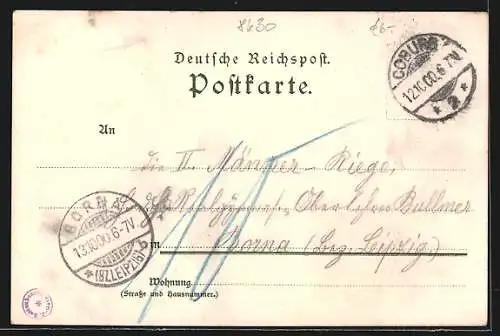 8630
26-
Deutsche Reichspost.
Postkarte.
COBURG
12.10.00.6-7N.
* 2 *
An
die II. Männer-Riege,
Oberlehrer Bullmer
in Borna (Bez. Leipzig.)
BORNA
13.10.00.6-7V.
*(BZ. LEIPZIG)*
Wohnung
(Straße und Hausnummer.)